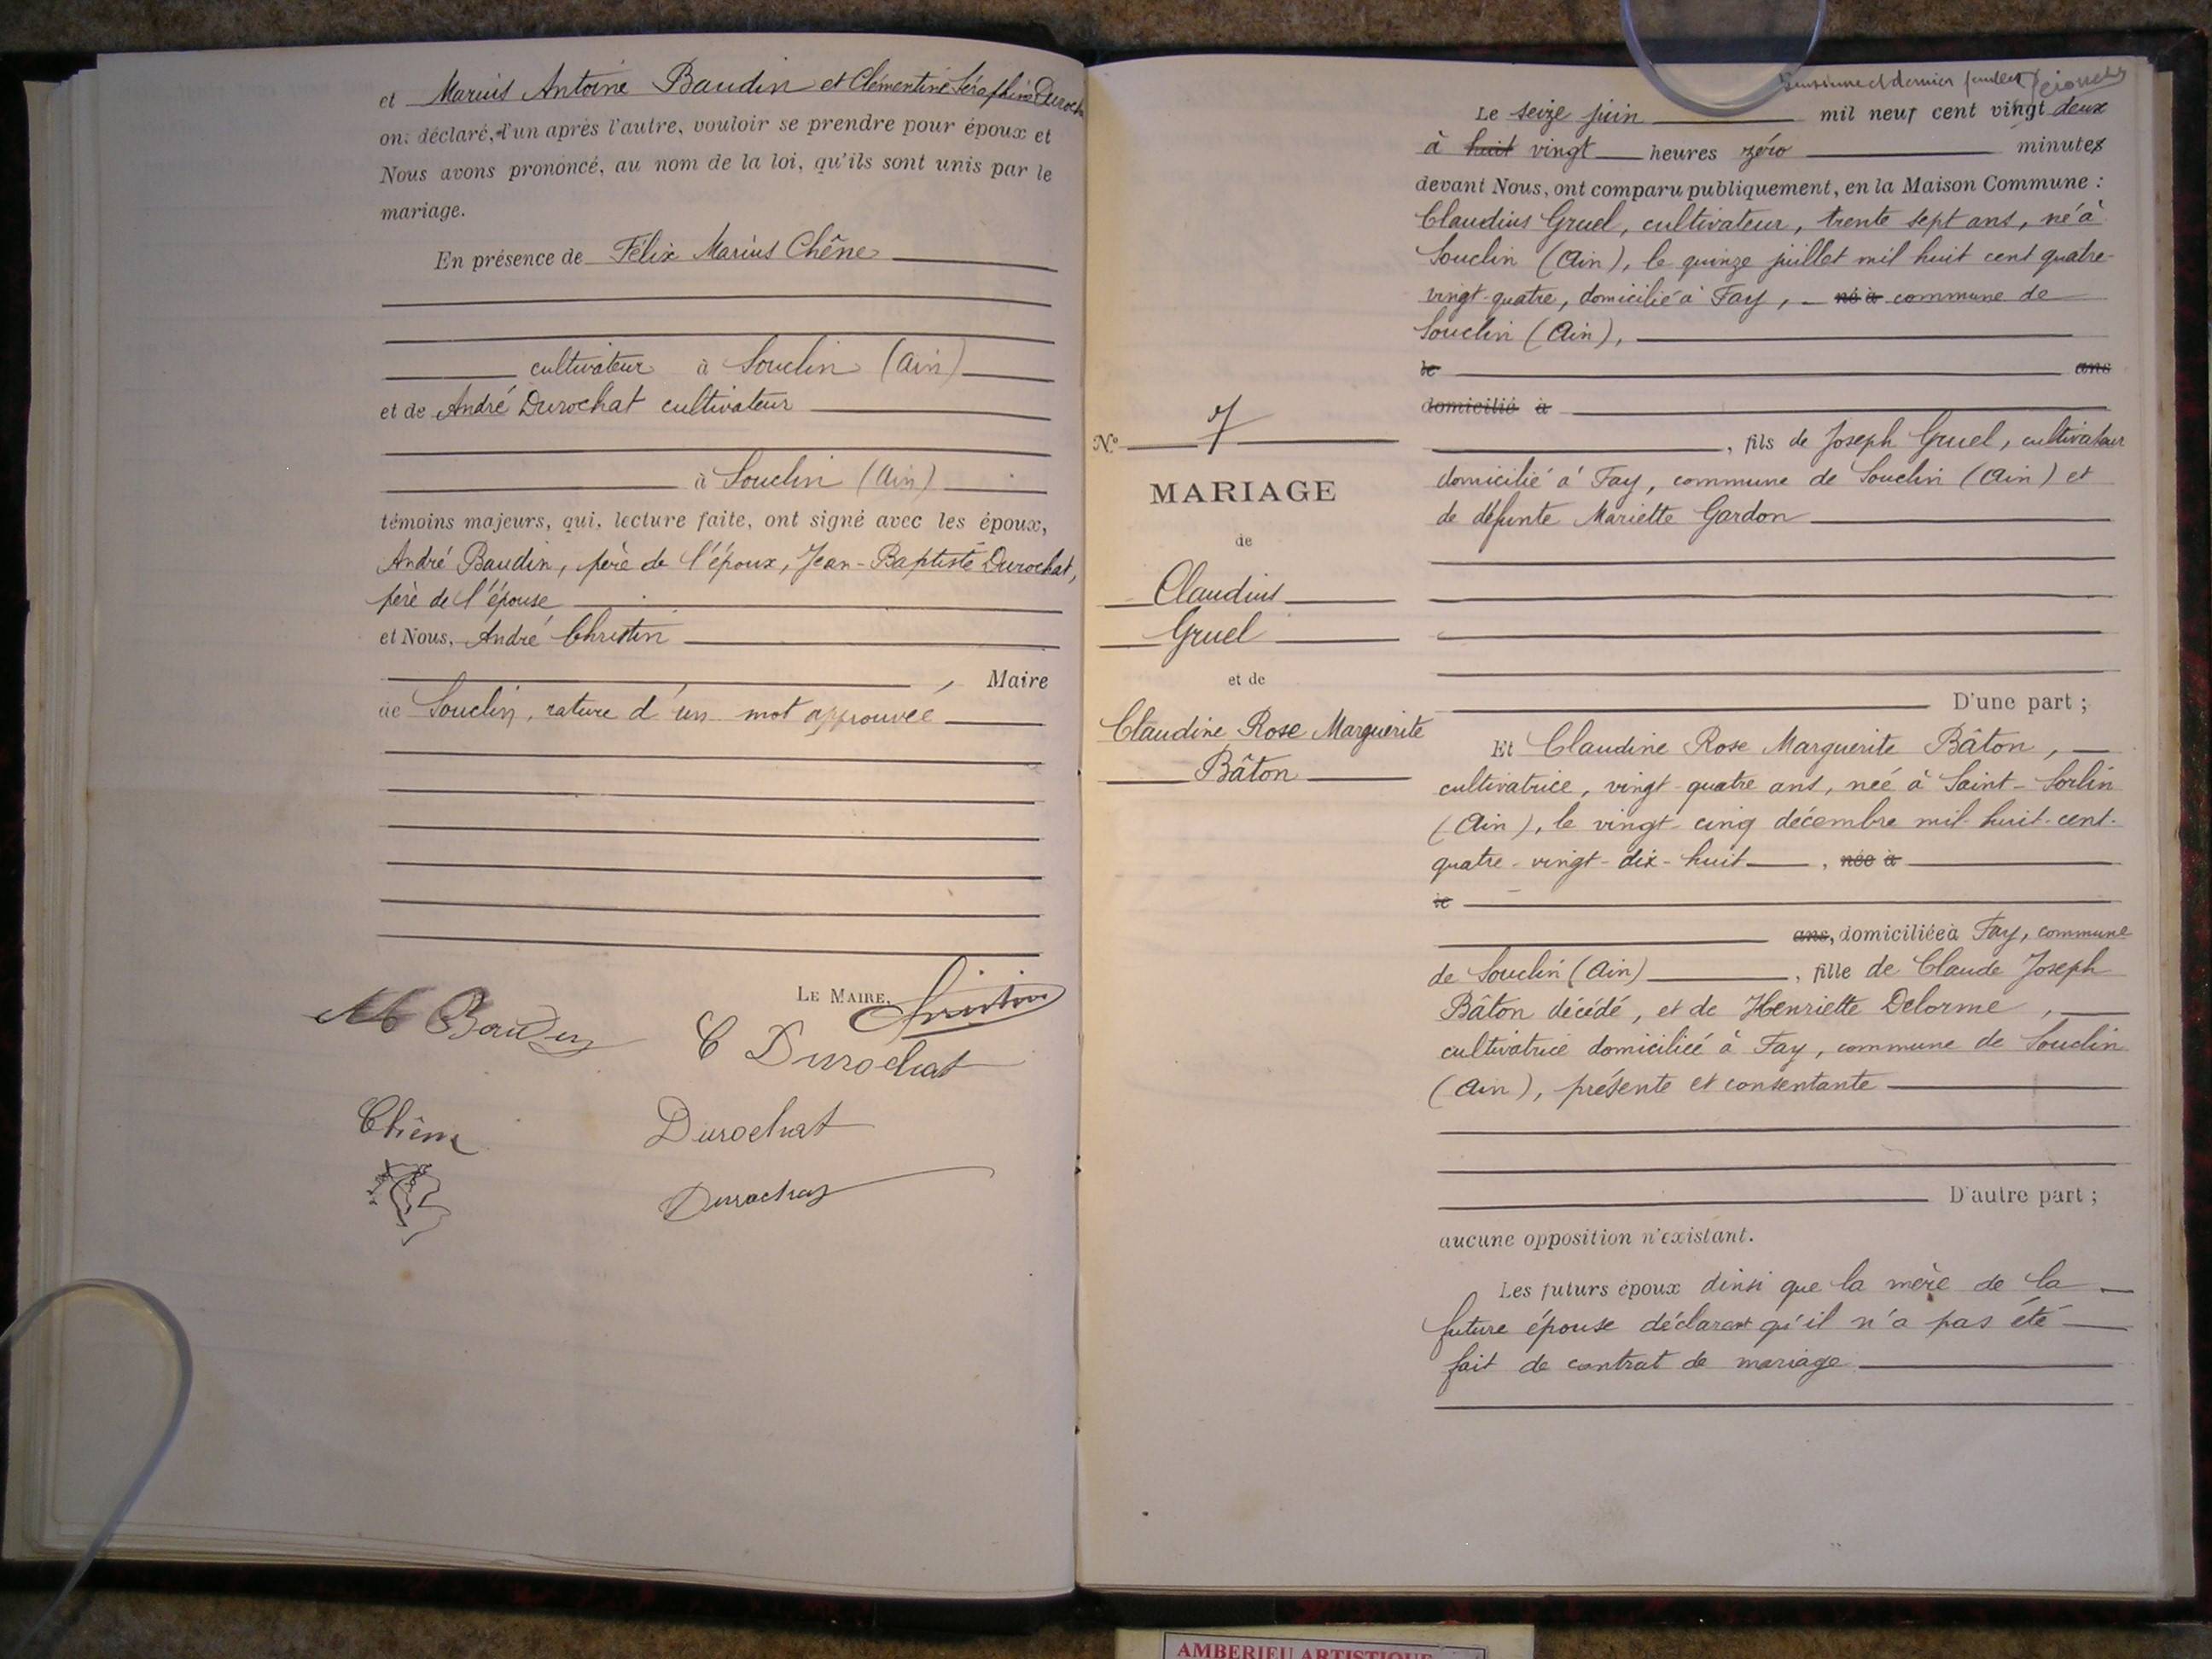 et Marius Antoine Baudin et Clémentine Séraphine Duroch
ont déclaré, l'un après l'autre, vouloir se prendre pour époux et
Nous avons prononcé, au nom de la loi, qu'ils sont unis par le
mariage.
En présence de Félix Marius Chêne
cultivateur à Souclin (Ain)
et de André Durochat cultivateur
à Souclin (Ain)
témoins majeurs, qui, lecture faite, ont signé avec les époux,
André Baudin, père de l'époux, Jean-Baptiste Durochat,
père de l'épouse
et Nous, André Christin
, Maire
de Souclin, rature d'un mot approuvée
LE MAIRE, Christin
M Baudin
C Durochat
Chêne
Durochat
Durochat
et dernier feuillet
Le seize juin mil neuf cent vingt deux
à huit vingt heures zéro minutes
devant Nous, ont comparu publiquement, en la Maison Commune :
Claudius Gruel, cultivateur, trente sept ans, né à
Souclin (Ain), le quinze juillet mil huit cent quatre-
vingt-quatre, domicilié à Fay, né à commune de
Souclin (Ain),
le ans
domicilié à
, fils de Joseph Gruel, cultivateur
domicilié à Fay, commune de Souclin (Ain) et
de défunte Mariette Gardon
D'une part ;
N° 7
MARIAGE
de
Claudius
Gruel
et de
Claudine Rose Marguerite
Bâton
Et Claudine Rose Marguerite Bâton,
cultivatrice, vingt-quatre ans, née à Saint-Sorlin
(Ain), le vingt-cinq décembre mil-huit-cent-
quatre-vingt-dix-huit , née à
le
ans, domiciliée à Fay, commune
de Souclin (Ain) , fille de Claude Joseph
Bâton décédé, et de Henriette Delorme,
cultivatrice domiciliée à Fay, commune de Souclin
(Ain), présente et consentante
D'autre part ;
aucune opposition n'existant.
Les futurs époux ainsi que la mère de la
future épouse déclarent qu'il n'a pas été
fait de contrat de mariage
AMBERIEU ARTISTIQUE